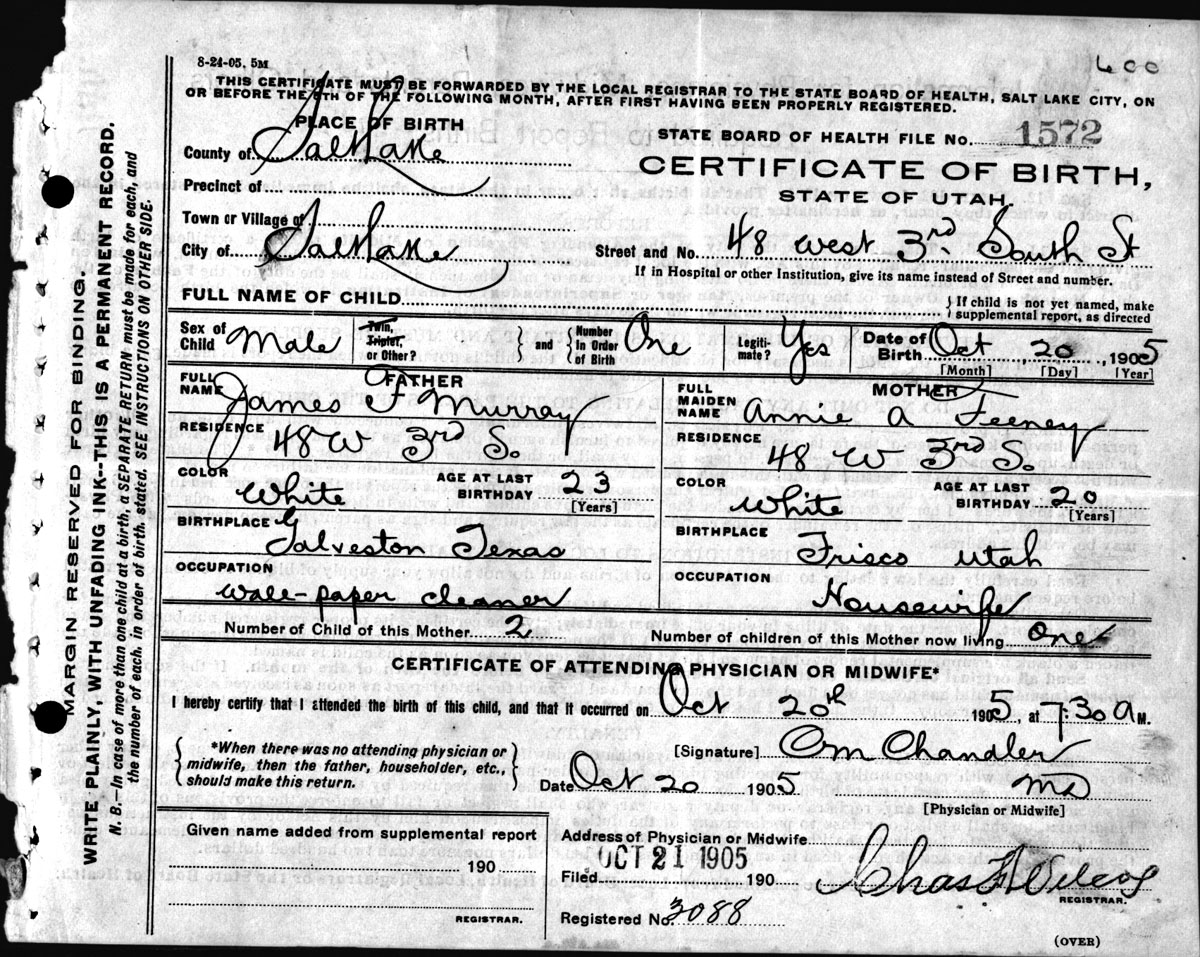 600
8-24-05, 5M
THIS CERTIFICATE MUST BE FORWARDED BY THE LOCAL REGISTRAR TO THE STATE BOARD OF HEALTH, SALT LAKE CITY, ON
OR BEFORE THE 5TH OF THE FOLLOWING MONTH, AFTER FIRST HAVING BEEN PROPERLY REGISTERED.
PLACE OF BIRTH
STATE BOARD OF HEALTH FILE No. 1572
County of Salt Lake
CERTIFICATE OF BIRTH,
Precinct of
STATE OF UTAH.
Town or Village of
City of Salt Lake
Street and No. 48 West 3rd. South St
If in Hospital or other Institution, give its name instead of Street and number.
FULL NAME OF CHILD
If child is not yet named, make
supplemental report, as directed
Sex of Child Male
Twin, Triplet, or Other?
and
Number in Order of Birth One
Legiti-mate? Yes
Date of Birth Oct 20, 1905
[Month] [Day] [Year]
FATHER
FULL NAME James F Murray
RESIDENCE 48 W 3rd S.
COLOR White
AGE AT LAST BIRTHDAY 23
[Years]
BIRTHPLACE Galveston Texas
OCCUPATION Wall-paper cleaner
MOTHER
FULL MAIDEN NAME Annie A Feeney
RESIDENCE 48 W 3rd S.
COLOR White
AGE AT LAST BIRTHDAY 20
[Years]
BIRTHPLACE Frisco Utah
OCCUPATION Housewife
Number of Child of this Mother 2
Number of children of this Mother now living one
CERTIFICATE OF ATTENDING PHYSICIAN OR MIDWIFE*
I hereby certify that I attended the birth of this child, and that it occurred on Oct 20th 1905, at 7:30 a M.
*When there was no attending physician or
midwife, then the father, householder, etc.,
should make this return.
[Signature] Chandler
MD
Date Oct 20 1905
[Physician or Midwife]
Given name added from supplemental report
190
REGISTRAR.
Address of Physician or Midwife
OCT 21 1905
Filed 190
Chas
REGISTRAR.
Registered No. 3088
(OVER)
MARGIN RESERVED FOR BINDING.
WRITE PLAINLY, WITH UNFADING INK--THIS IS A PERMANENT RECORD.
N. B.--In case of more than one child at a birth, a SEPARATE RETURN must be made for each, and
the number of each, in order of birth, stated. SEE INSTRUCTIONS ON OTHER SIDE.